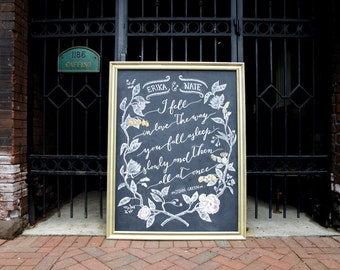 1186
ERIKA & NATE
I fell
in love the way
you fall asleep
slowly and then
all at once